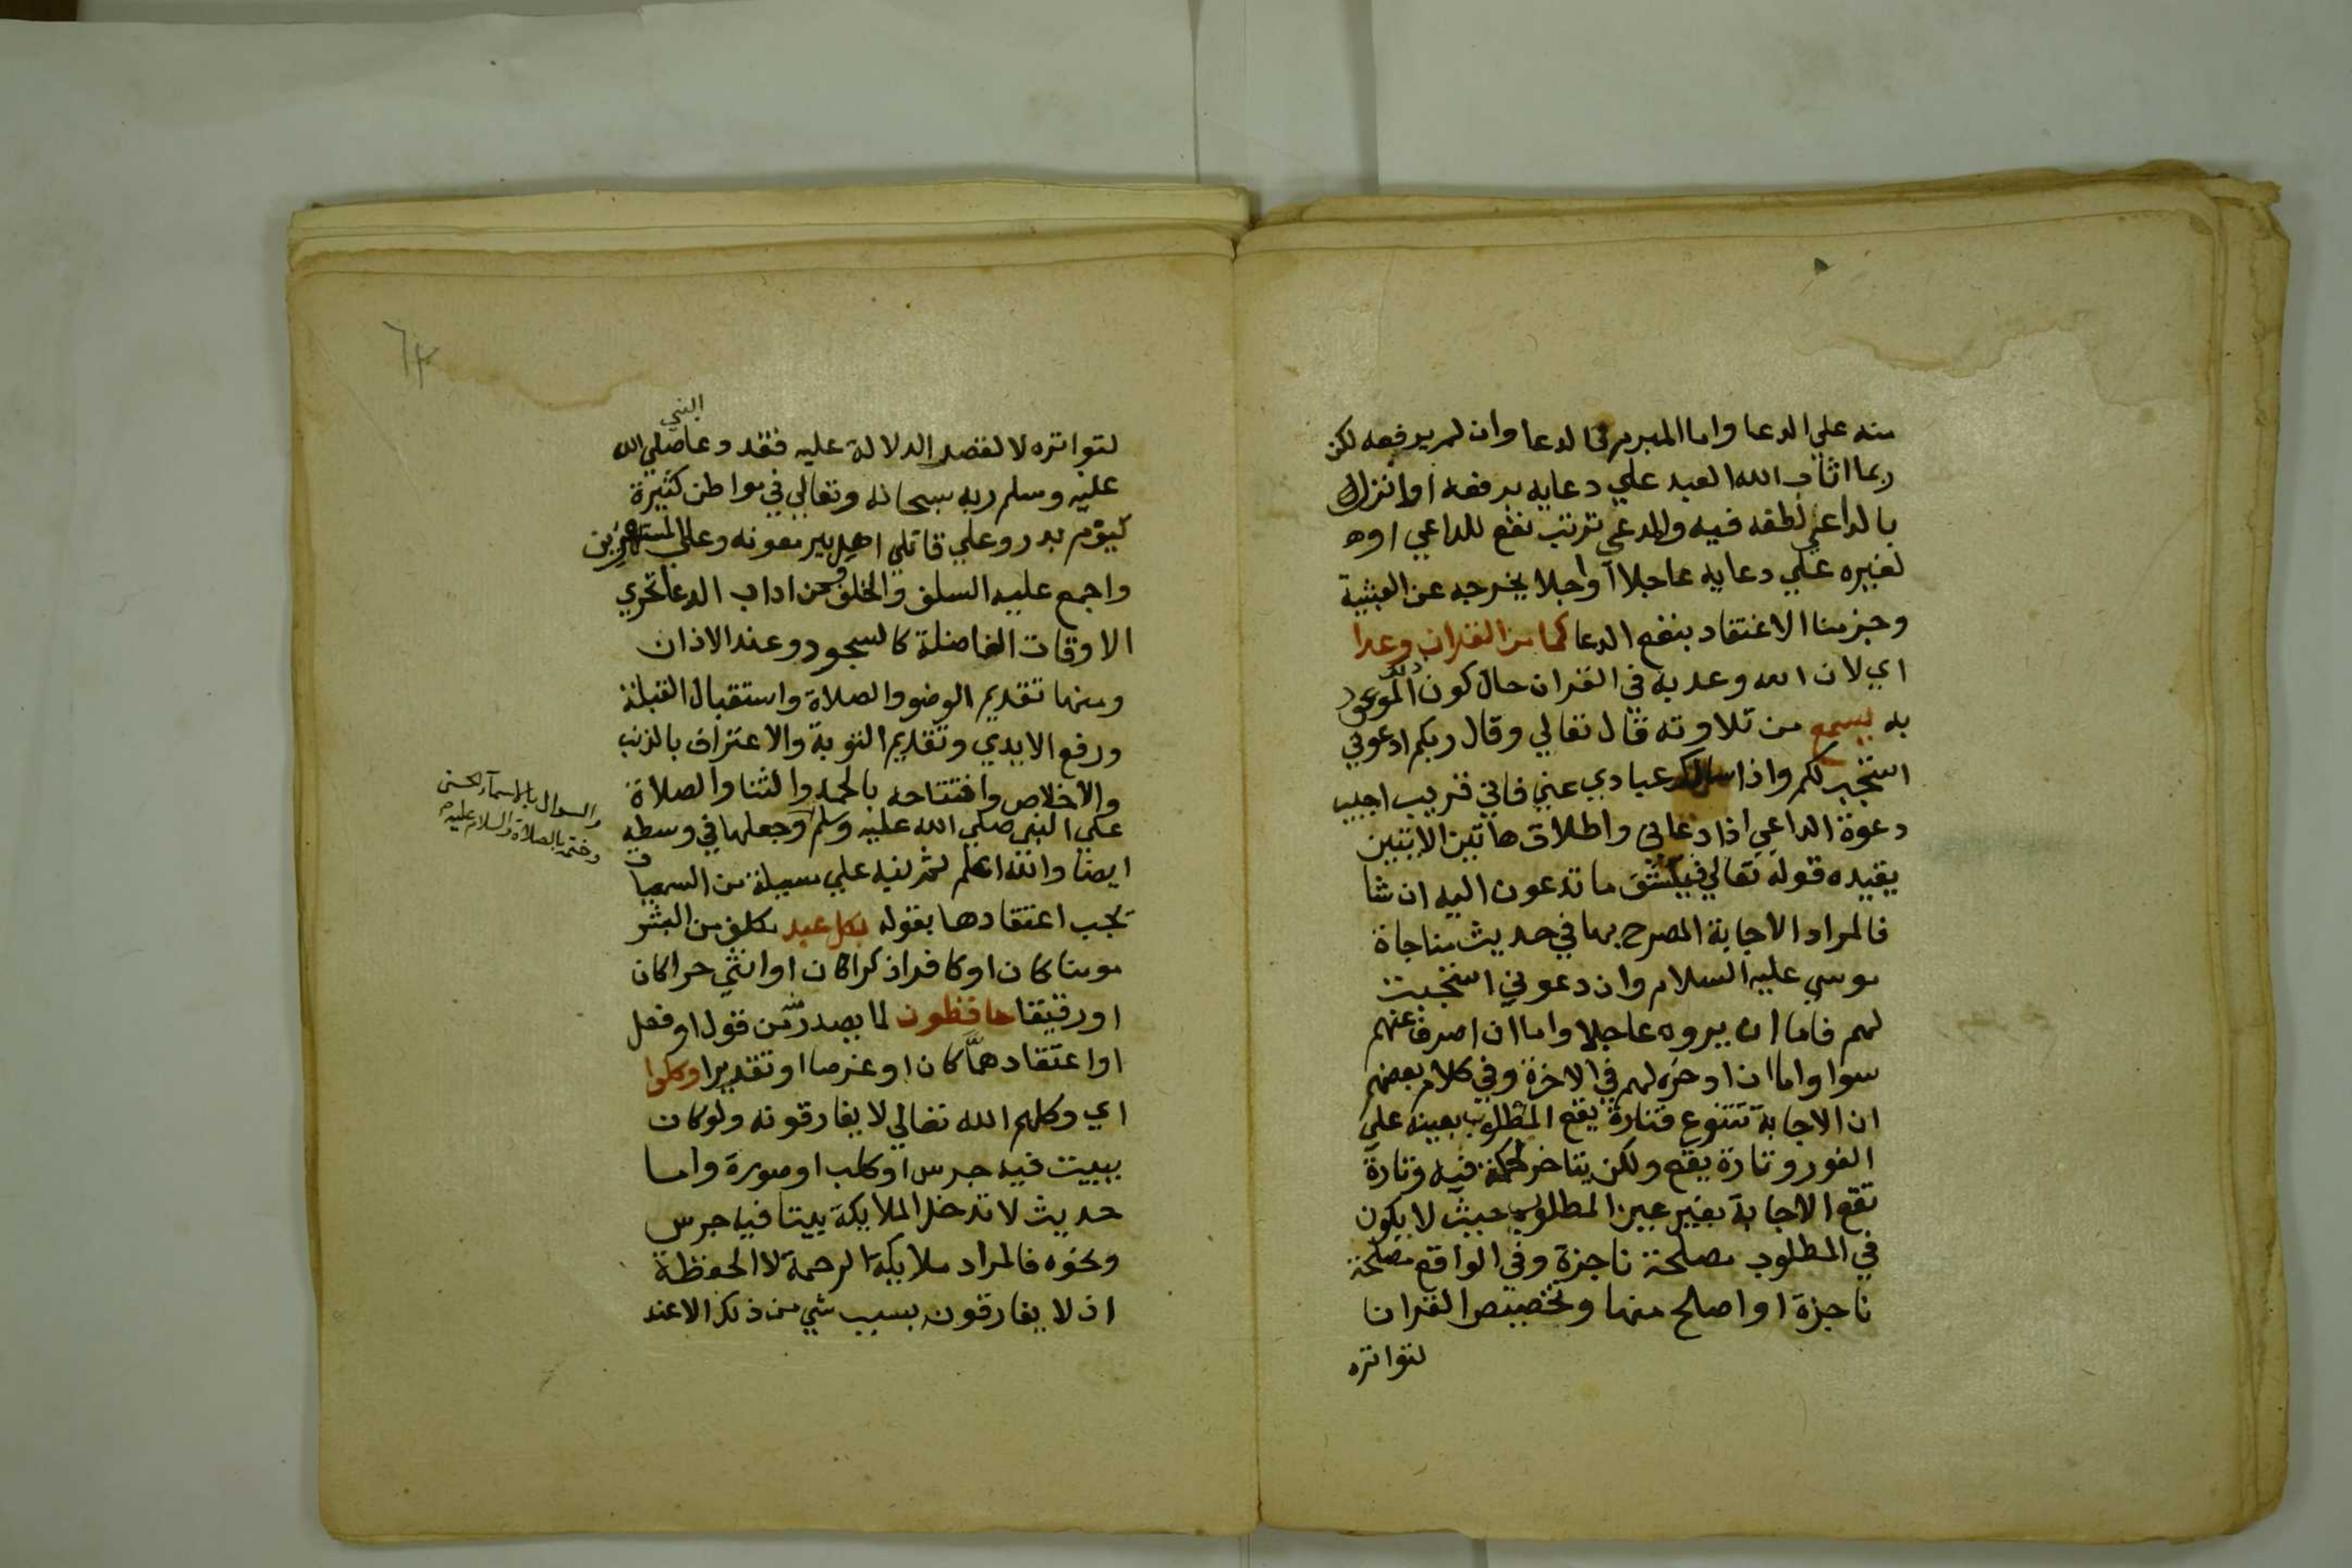 منه علي الدعا واما المبرم فالدعا وان لم يرفعه لكن
ربما اثاب الله العبد علي دعايه برفعه او انزل
بالداعي لطفه فيه والمدعي ترتب نفع للداعي اوه
لغيره علي دعايه عاجلا او اجلا يخرجه عن العبثية
وجزمنا الاعتقاد بنفع الدعا كما من القران وعدا
اي لان الله وعد به في القران حال كون الموعود
به يسمع من تلاوته قال تعالي وقال ربكم ادعوني
استجب لكم واذا سالك عبادي عني فاني قريب اجيب
دعوة الداعي اذا دعاني واطلاق هاتين الايتين
يقيده قوله تعالي فيكشف ما تدعون اليه ان شا
فالمراد الاجابة المصرح بها في حديث مناجاة
موسي عليه السلام وان دعوني استجبت
لهم فاما ان يروه عاجلا واما ان اصرف عنهم
سوا واما ان ادخره لهم في الاخرة وفي كلام بعضهم
ان الاجابة تتنوع فتارة يقع المطلوب بعينه علي
الفور وتارة يقع ولكن يتاخر لحكمة فيه وتارة
تقع الاجابة بغير عين المطلوب حيث لا يكون
في المطلوب مصلحة ناجزة وفي الواقع مصلحة
ناجزة او اصلح منها وتخصيص القران
لتواتره
٦٣
لتواتره لا لقصر الدلالة عليه فقد دعا صلي الله
النبي
عليه وسلم ربه سبحانه وتعالي في مواطن كثيرة
كيوم بدر وعلي قاتلي اهل بير معونه وعلي المستهزين
واجمع عليه السلف والخلف ومن اداب الدعا تحري
الاوقات الفاضلة كالسجود وعند الاذان
ومنها تقديم الوضو والصلاة واستقبال القبلة
ورفع الايدي وتقديم التوبة والاعتراف بالذنب
والاخلاص وافتتاحه بالحمد والثنا والصلاة
علي النبي صلي الله عليه وسلم وجعلها في وسطه
والسوال بالاسماء الحسني
وختمه بالصلاة والسلام عليه
ايضا والله اعلم ثم نبه علي مسيلة من السمعيات
يجب اعتقادها بقوله بكل عبد مكلف من البشر
مومنا كان او كافرا ذكرا كان او انثي حرا كان
او رقيقا حافظون لما يصدر من قول او فعل
او اعتقاد هما كان او عزما او تقديرا وكلوا
اي وكلهم الله تعالي لا يفارقونه ولو كان
ببيت فيه جرس او كلب او صورة واما
حديث لا تدخل الملايكة بيتا فيه جرس
ونحوه فالمراد ملايكة الرحمة لا الحفظة
اذ لا يفارقون بسبب شي من ذلك الا عند